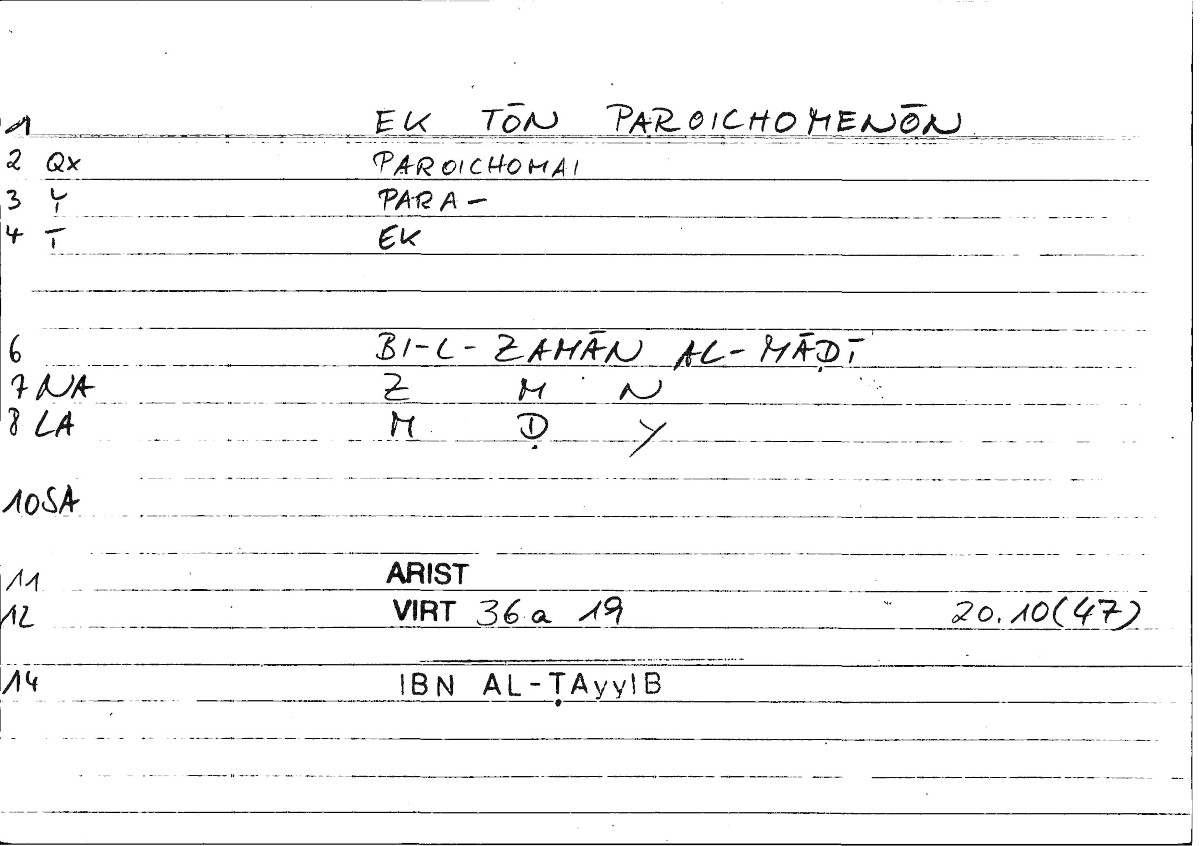 1 EK TŌN PAROICHOMENŌN
2 Qx PAROICHOMAI
3 Y PARA-
4 T EK
6 BI-L-ZAMĀN AL-MĀḌĪ
7 NA Z M N
8 LA M Ḍ Y
10 SA
11 ARIST
12 VIRT 36 a 19 20.10(47)
14 IBN AL-ṬAyyIB